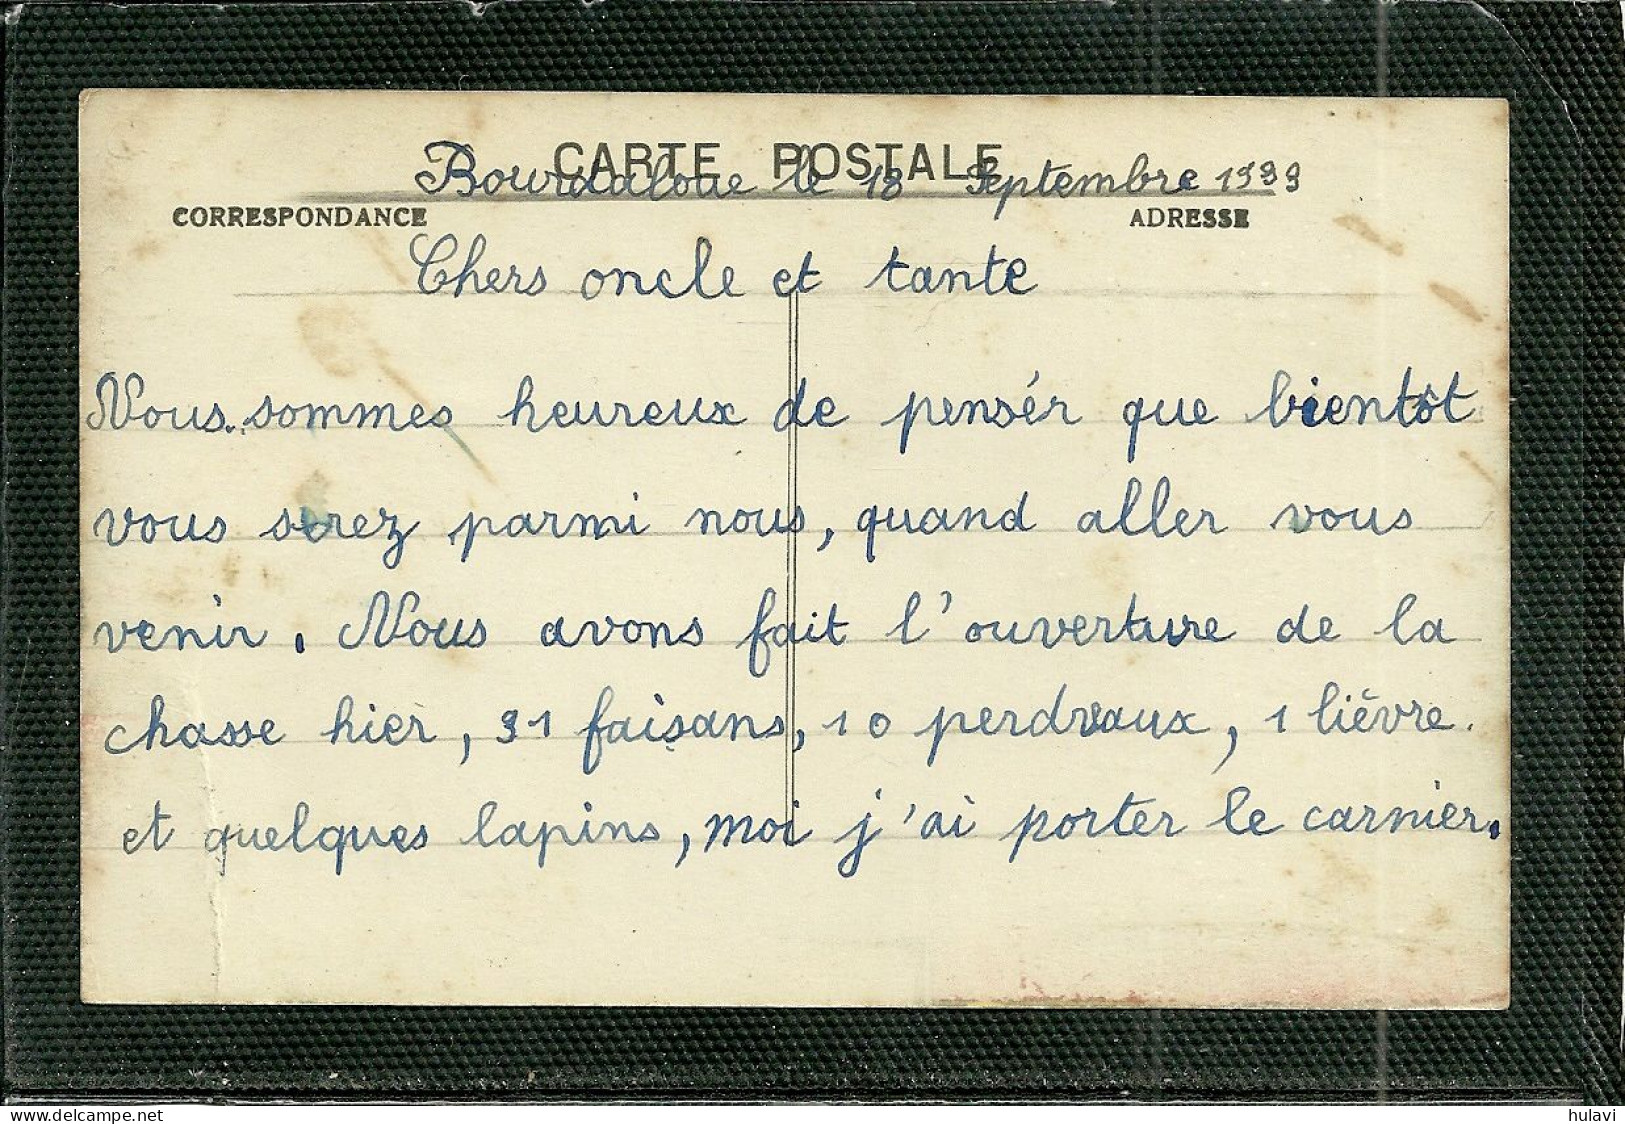 CARTE POSTALE
Bourdaloue le 18 Septembre 1939
CORRESPONDANCE ADRESSE
Chers oncle et tante
Nous sommes heureux de pensér que bientôt
vous serez parmi nous, quand aller vous
venir. Nous avons fait l'ouverture de la
chasse hier, 31 faisans, 10 perdreaux, 1 lièvre.
et quelques lapins, moi j'ai porter le carnier.
hulavi
delcampe.net